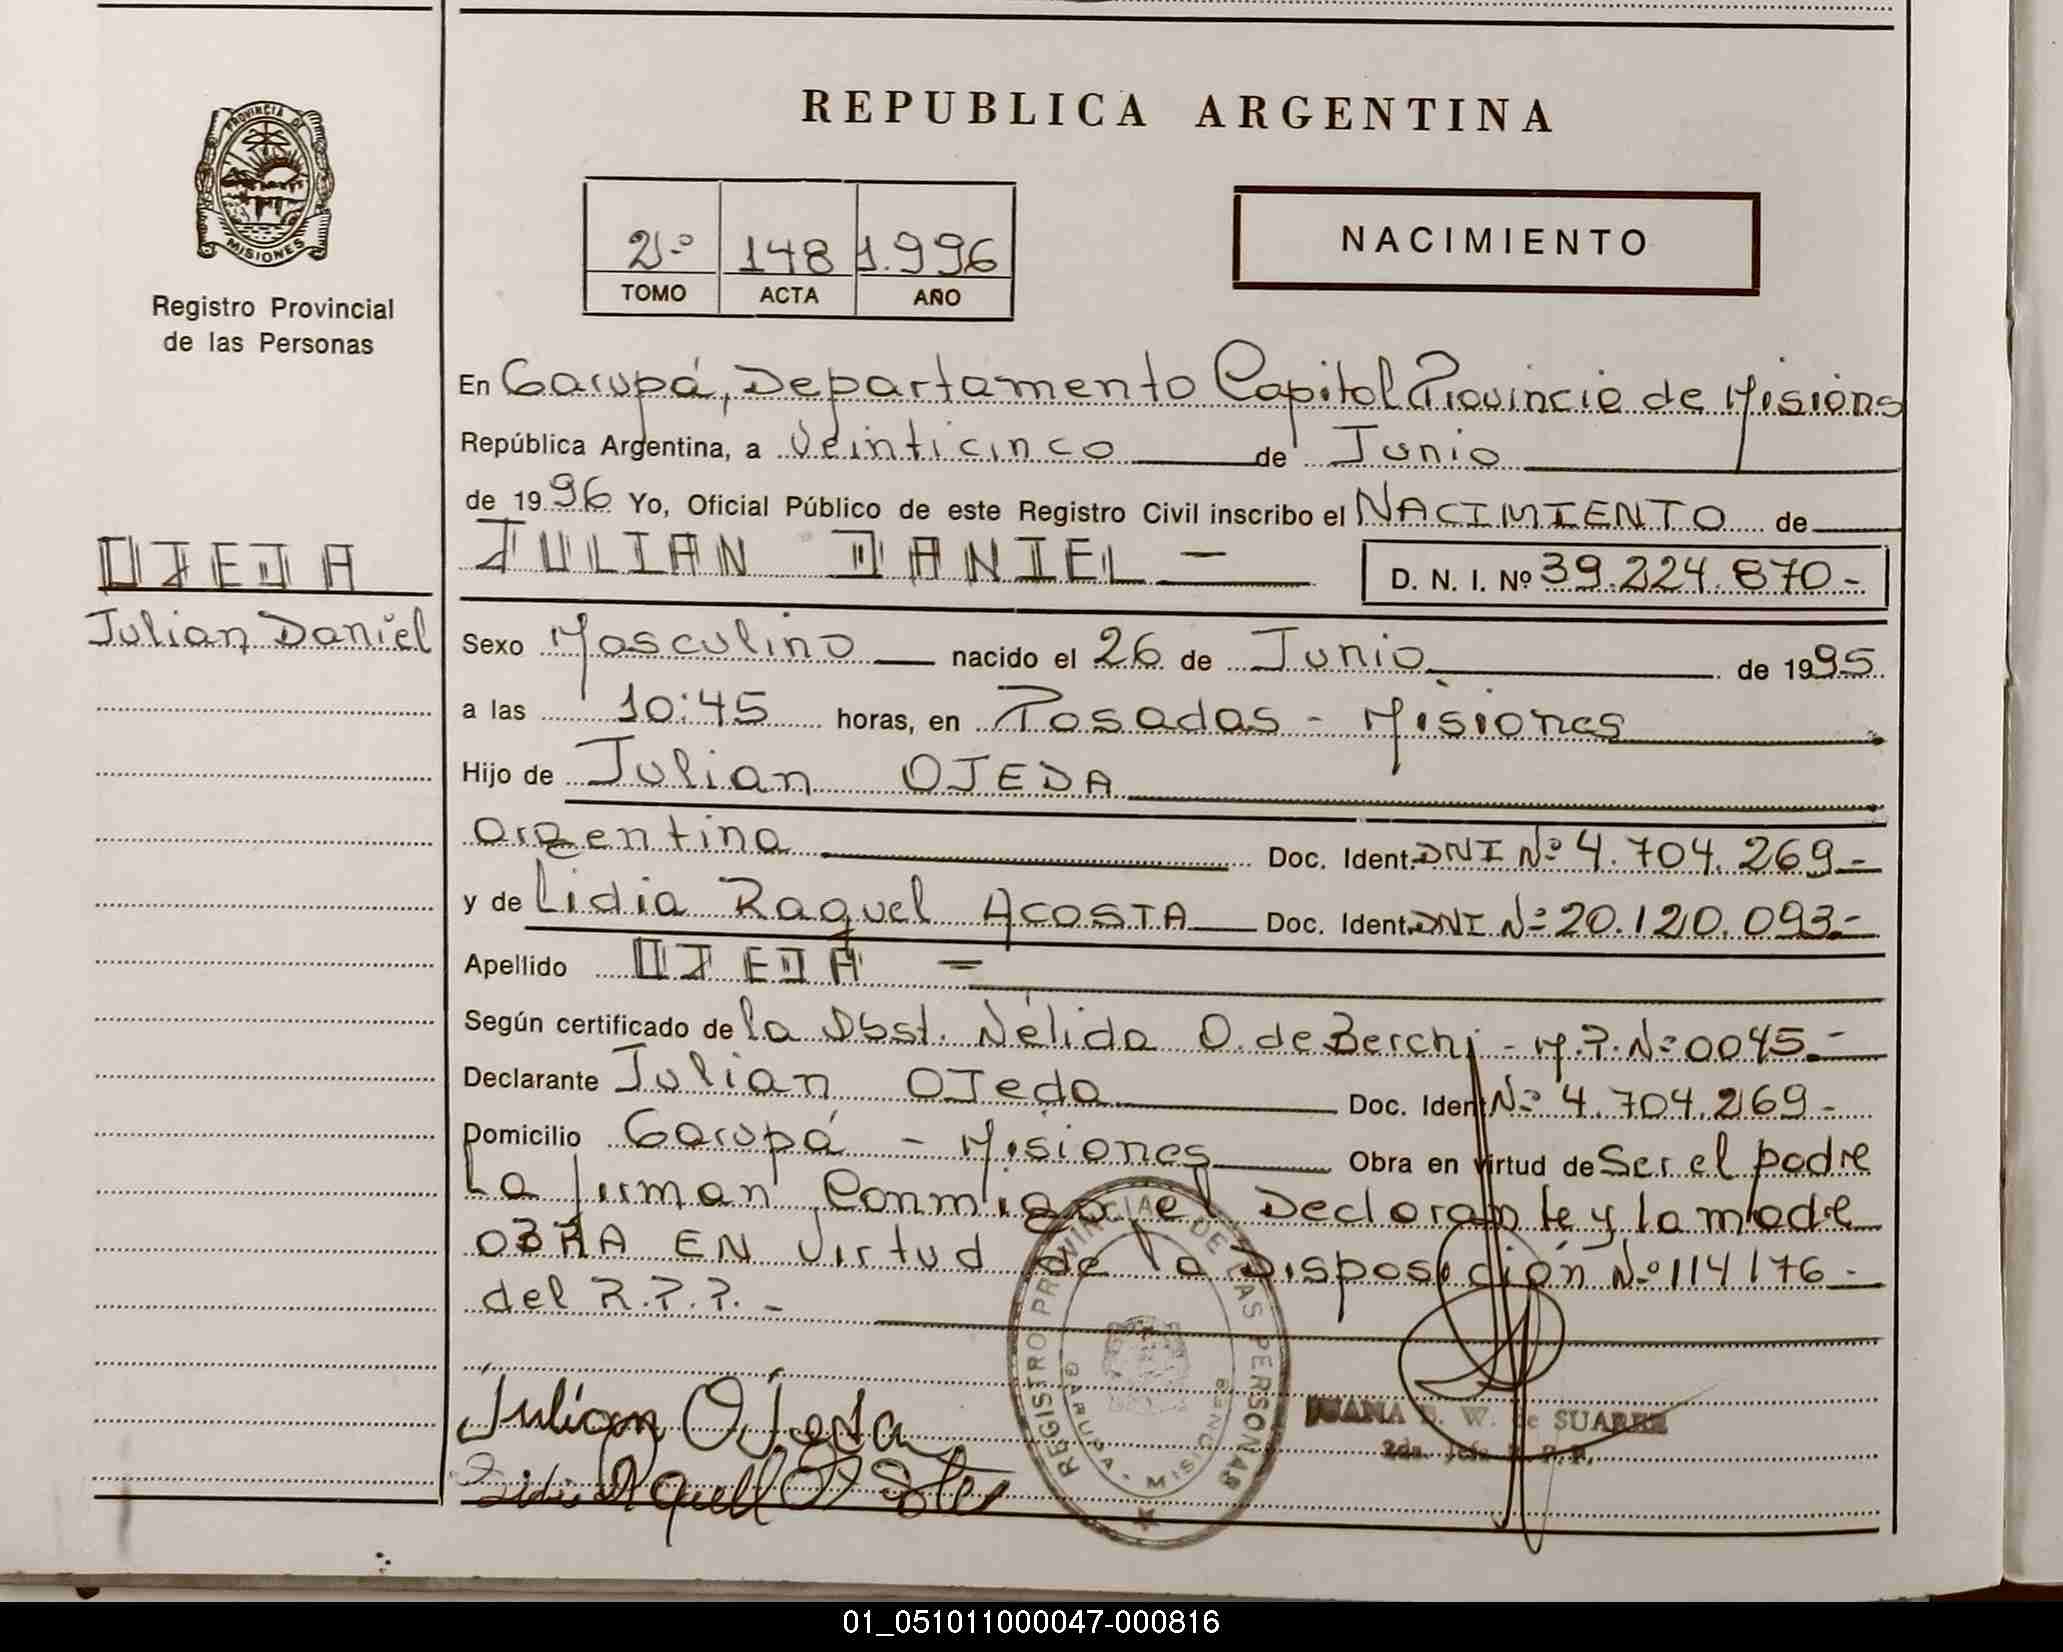 REPUBLICA ARGENTINA
PROVINCIA DE
MISIONES
Registro Provincial
de las Personas
2º 148 1.996
TOMO ACTA AÑO
NACIMIENTO
En Garupá, Departamento Capital Provincia de Misiones
República Argentina, a Veinticinco de Junio
de 1996 Yo, Oficial Público de este Registro Civil inscribo el NACIMIENTO de
OJEDA
JULIAN DANIEL - D. N. I. Nº 39.224.870-
Julian Daniel
Sexo Masculino nacido el 26 de Junio de 1995
a las 10:45 horas, en Posadas - Misiones
Hijo de Julian OJEDA
argentino Doc. Ident. DNI Nº 4.704.269-
y de Lidia Raquel ACOSTA Doc. Ident. DNI Nº 20.120.093.-
Apellido OJEDA -
Según certificado de la Obst. Nélida O. de Berchi - M.P. Nº 0045.-
Declarante Julian OJeda Doc. Ident Nº 4.704.269-
Domicilio Garupá - Misiones Obra en virtud de Ser el padre
La firman Conmigo el Declarante y la madre
OBRA EN Virtud de la Disposición Nº 114/76-
del R.P.P. -
REGISTRO PROVINCIAL DE LAS PERSONAS
GARUPA - MISIONES
Julian Ojeda
JUANA W. de SUAREZ